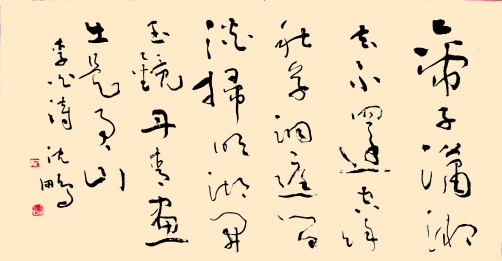 帝子瀟湘
去不還空餘
秋草洞庭間
淡掃明湖開
玉鏡丹青畫
出是君山
李白詩 沈鵬